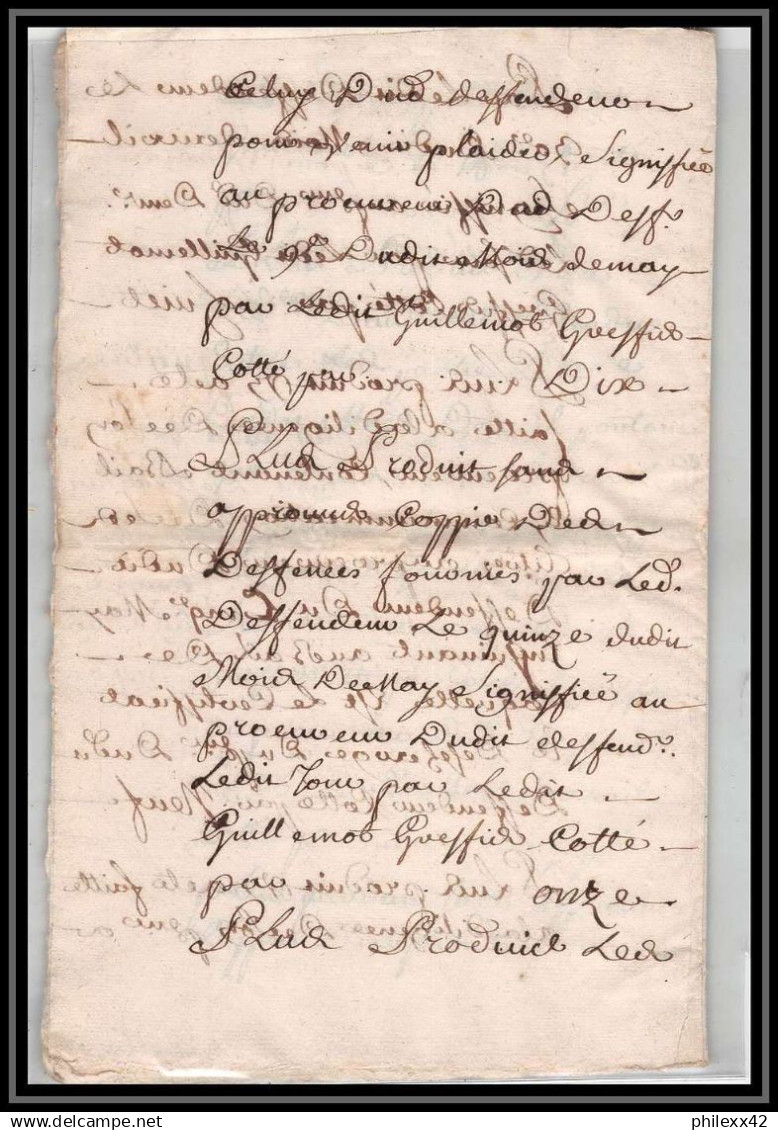 Celuy Dud deffendeur
pour venir plaider, Signiffié
au procureur Dud Deff.r
Le 9e Dudit Mois demay
par Ledit Guillemot Greffier
Cotté par Dix
PLus Produit sans
approuver Coppie Des
Deffences fournies par Led.
Deffendeur Le quinze dudit
Mois De May Signiffié au
procureur Dudit deffend.r
Ledit Jour par Ledit
Guillemot Greffier Cotté
par onze
PLus Produict Les
philexx42